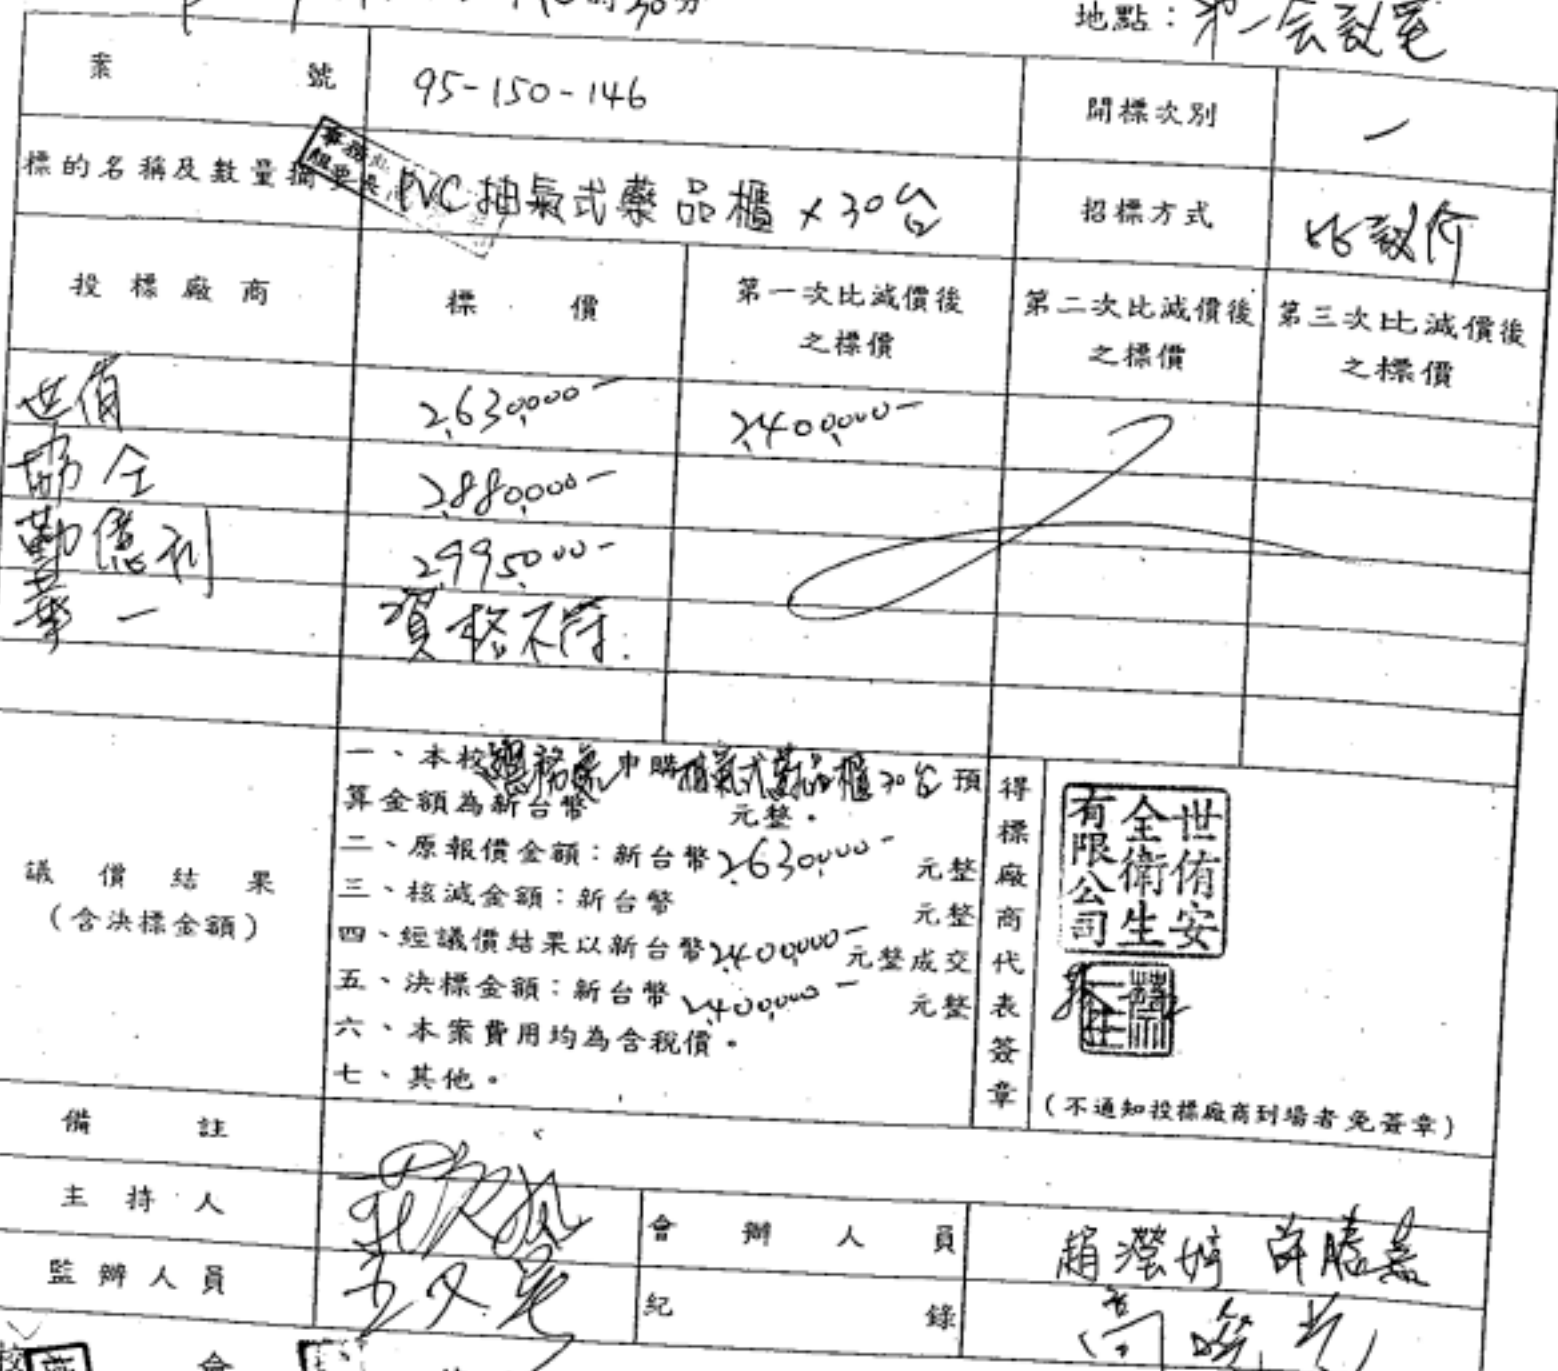 30分
地點：第一会議室
案 號 95-150-146 開標次別 一
標的名稱及數量摘要 PVC抽氣式藥品櫃 x 30台 招標方式 比議價
投標廠商 標價 第一次比減價後之標價 第二次比減價後之標價 第三次比減價後之標價
世侑 2,630,000- 2,400,000-
勤全 2,880,000-
勤億利 2,995,000-
華一 資格不符.
議價結果
(含決標金額)
一、本校總務處申購抽氣式藥品櫃30台預
算金額為新台幣 元整。
二、原報價金額：新台幣2,630,000- 元整
三、核減金額：新台幣 元整
四、經議價結果以新台幣2,400,000-元整成交
五、決標金額：新台幣2,400,000- 元整
六、本案費用均為含稅價。
七、其他。
得標廠商代表簽章
世侑安
全衛生
有限公司
(不通知投標廠商到場者免簽章)
備註
主持人
會辦人員 趙瀅婷 許勝嘉
監辦人員
紀錄
會